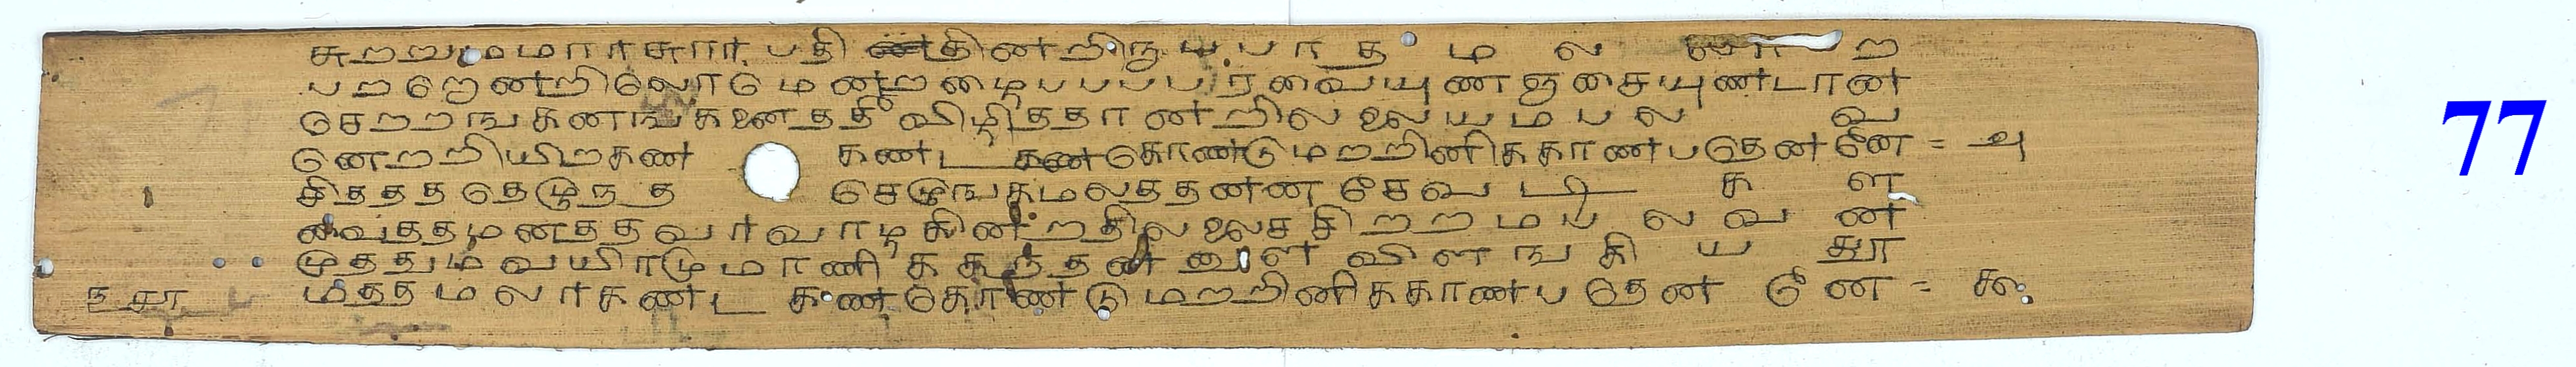 சுறறுமமராசுரர பதி தினறிநுபபாத ம ல லா ற
பறறெனறிலொமெனறழைபபபபரவையுணஞசையுணடான
செறறஙகனஙகனைததீ விழிததானறிலலையமபல வ
னெறறியிறகண கணட கணகொணடுமறறினிககாணபதெனனே = ௰
சிததததெழுநத செழுஙகமலததனன சேவடி க ள
வைததமனததவரவாழகினறதிலலைச சிறறமபலவன
முததுமவயிரமுமாணிககநதனனுள விளஙகிய தூ
மததமலரகணட கணகொணடுமறறினிககாணபதென னே = ௯
77